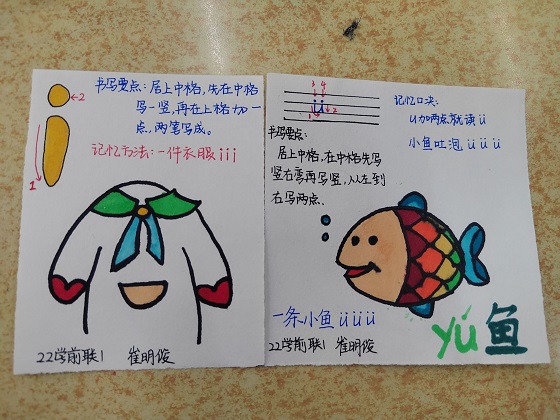 书写要点:居上中格,先在中格
写一竖,再在上格加一
点,两笔写成。
记忆方法:一件衣服 i i i
←2
1
22学前联1 崔明俊
3 4
ü
1 2
记忆口决:
u加两点就读ü
小鱼吐泡 ü ü ü
书写要点:
居上中格,在中格先写
竖右弯再写竖,从左到
右写两点.
一条小鱼 ü ü ü ü
yú 鱼
22学前联1 崔明俊